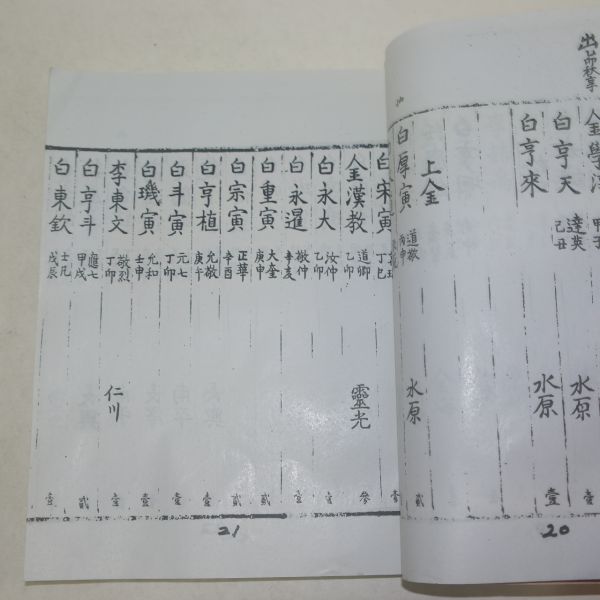 金學 甲子
白亨天 達 己丑 水原
白亨來 水原 壹
上金
白厚寅 道敬 丙申 水原 貳
20
白宋寅 丁巳 壹
金漢教 道卿 乙卯 靈光 參
白永大 汝仲 乙卯 壹
白永暹 敬仲 辛亥 壹
白重寅 大奎 庚申 貳
白宗寅 正華 辛酉 貳
白亨植 允敬 庚午 壹
白斗寅 元七 丁卯 壹
白璣寅 允和 壬申 壹
李東文 敬烈 丁卯 仁川 壹
白亨斗 應七 甲戌 貳
白東欽 士凡 戊辰 壹
21